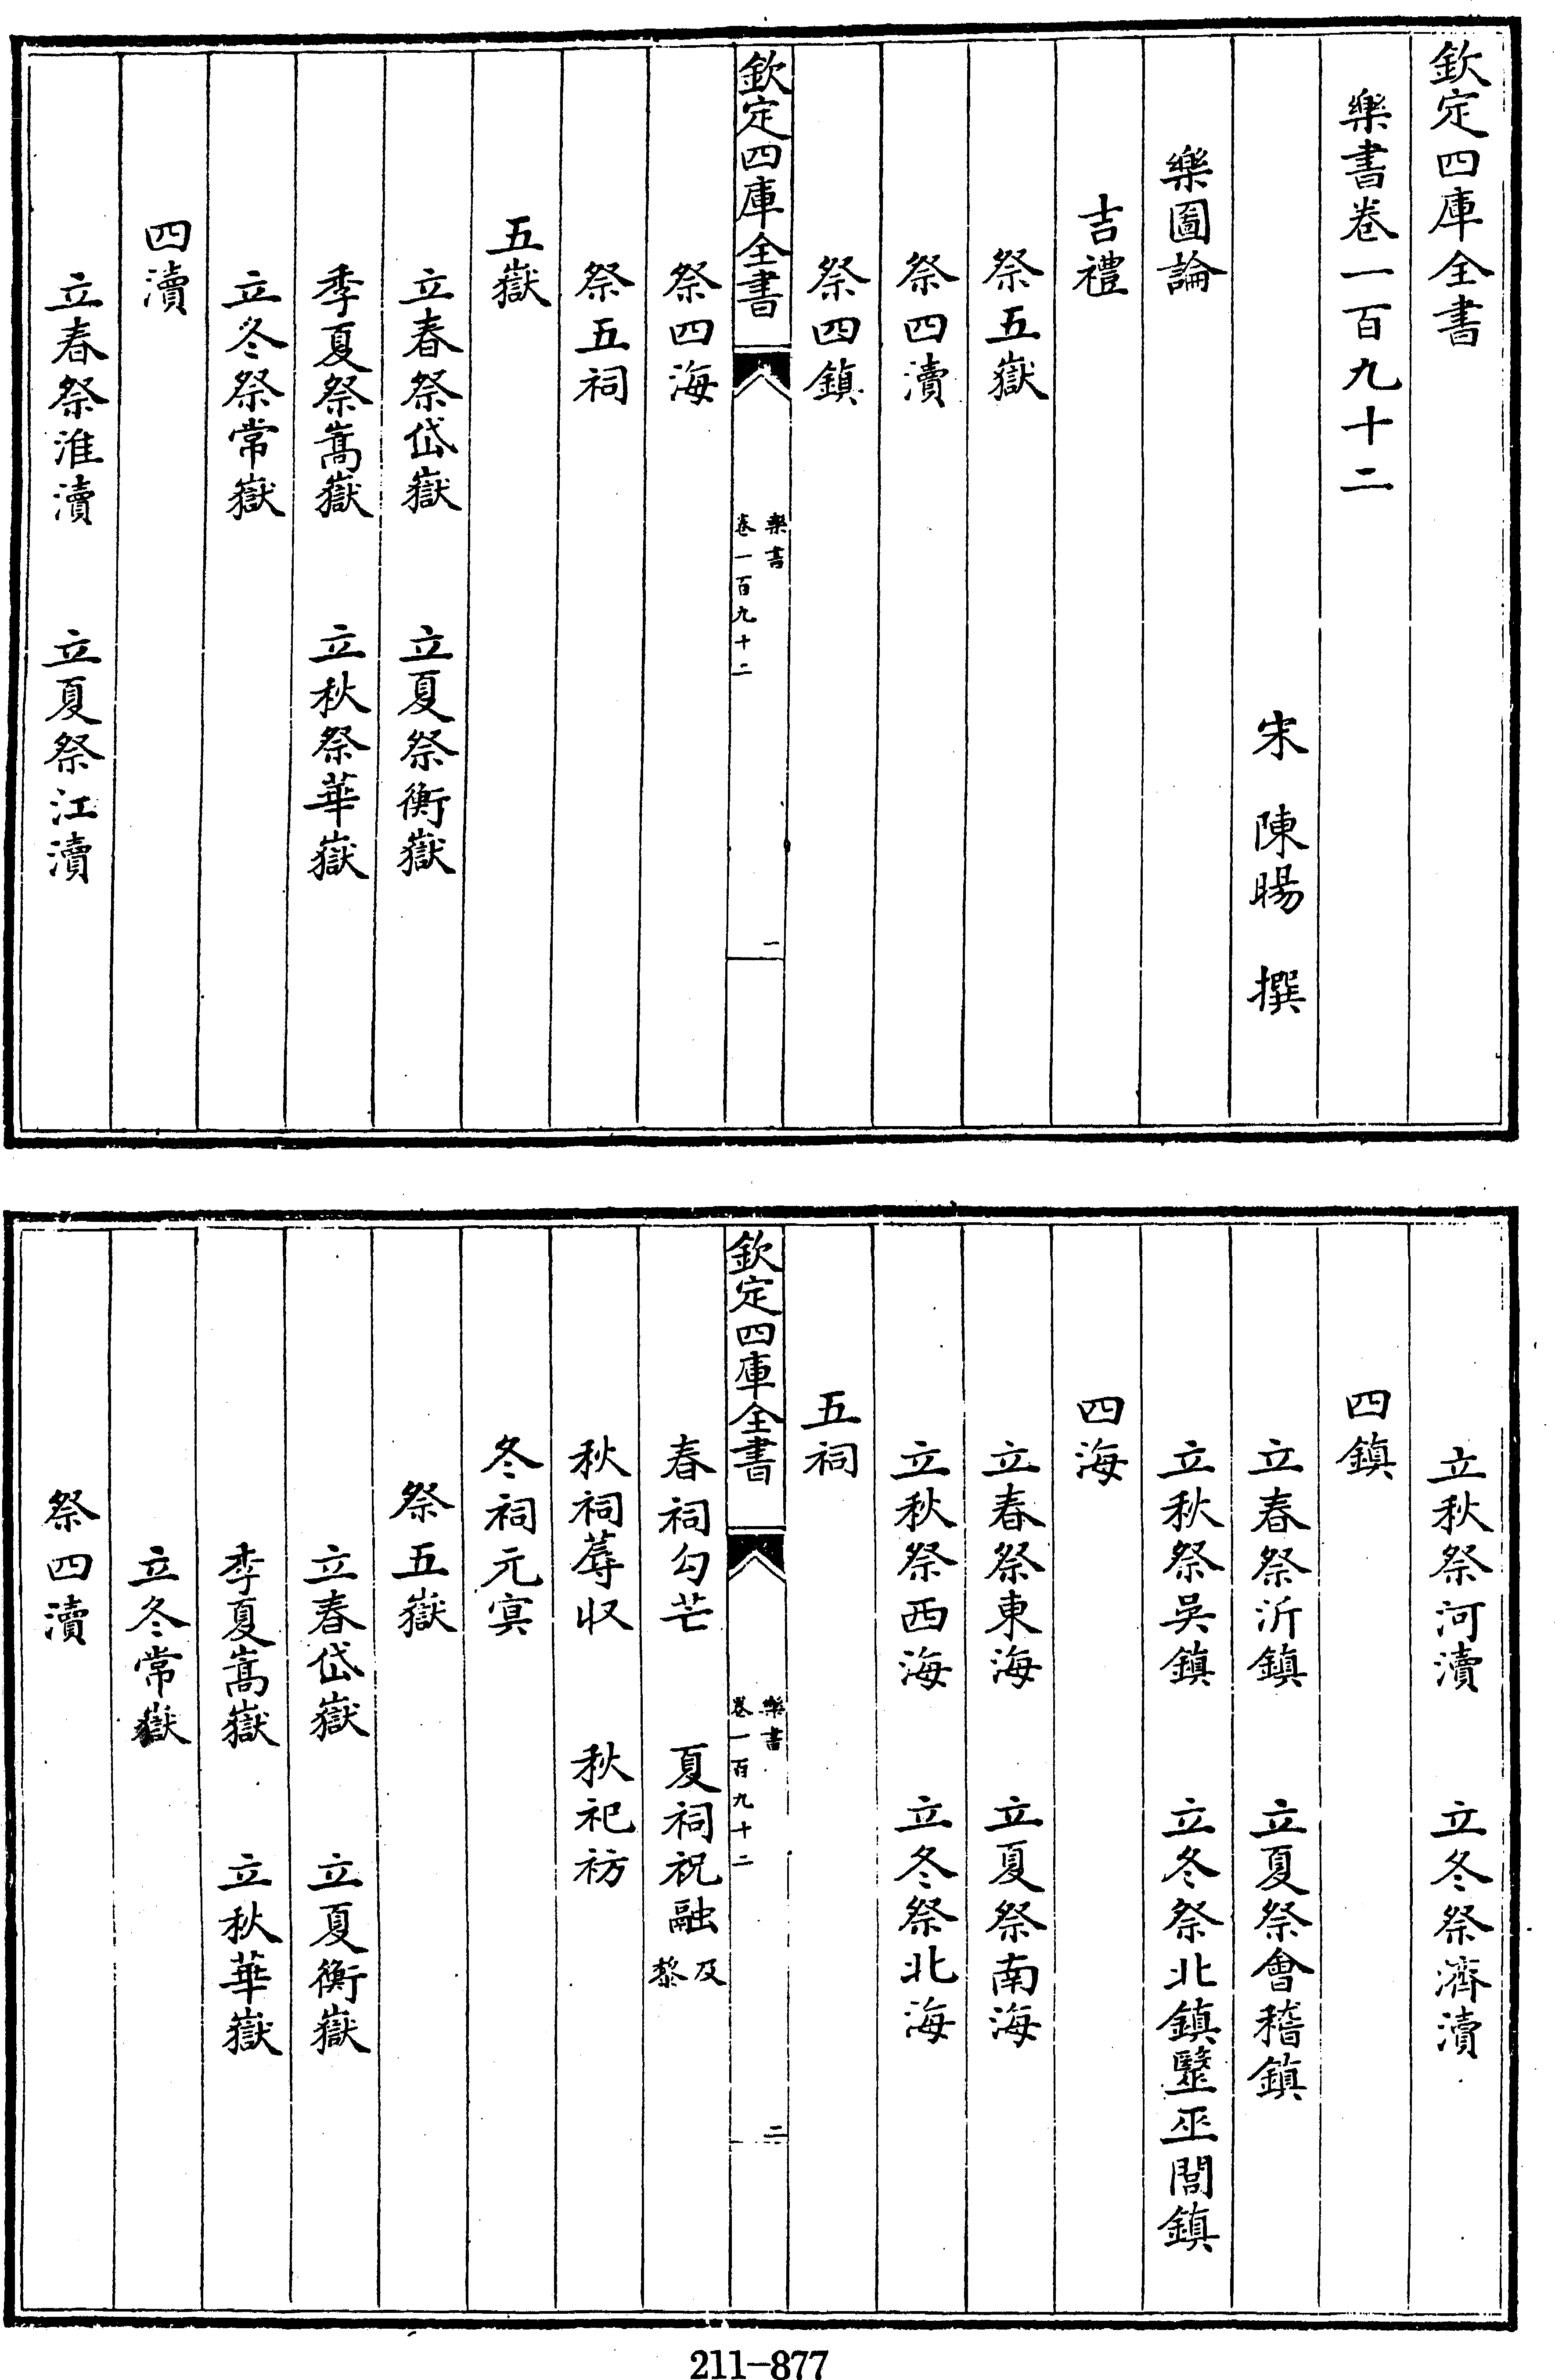 欽定四庫全書
樂書卷一百九十二
宋 陳暘 撰
樂圖論
吉禮
祭五嶽
祭四瀆
祭四鎮
欽定四庫全書 樂書 卷一百九十二 一
祭四海
祭五祠
五嶽
立春祭岱嶽 立夏祭衡嶽
季夏祭嵩嶽 立秋祭華嶽
立冬祭常嶽
四瀆
立春祭淮瀆 立夏祭江瀆
立秋祭河瀆 立冬祭濟瀆
四鎮
立春祭沂鎮 立夏祭會稽鎮
立秋祭吳鎮 立冬祭北鎮毉巫閭鎮
四海
立春祭東海 立夏祭南海
立秋祭西海 立冬祭北海
五祠
欽定四庫全書 樂書 卷一百九十二 二
春祠勾芒 夏祠祝融及黎
秋祠蓐收 秋祀祊
冬祠元㝠
祭五嶽
立春岱嶽 立夏衡嶽
季夏嵩嶽 立秋華嶽
立冬常嶽
祭四瀆
211-877